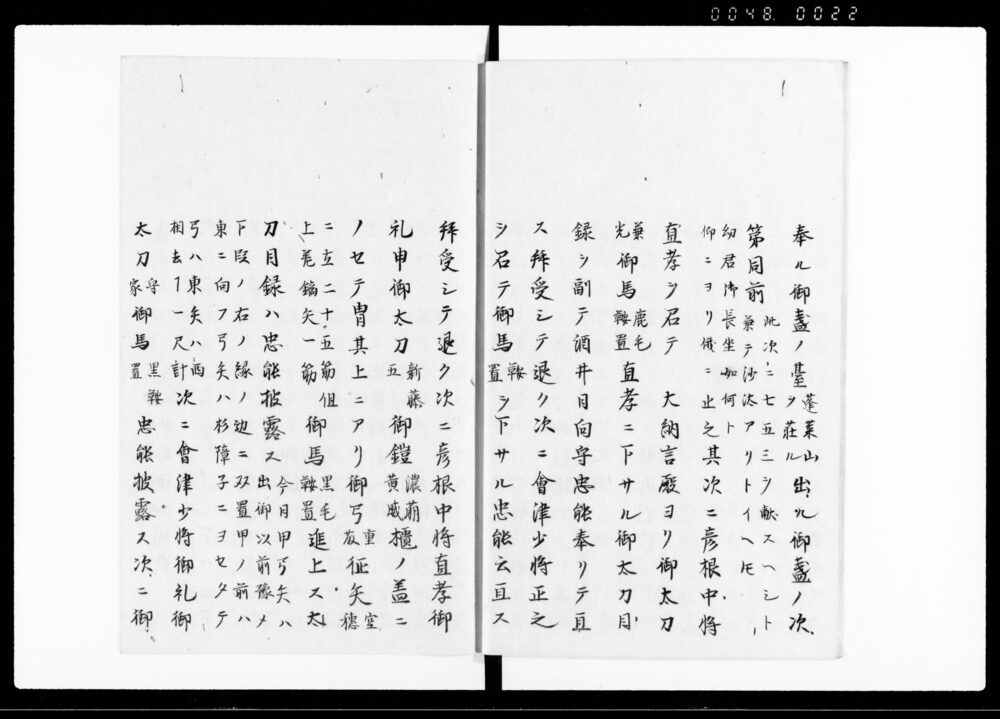 0048. 0022
奉ル御盞ノ臺蓬莱山ヲ荘ル出ル御盞ノ次
第同前此次ニ七五三ヲ献スヘシト兼テ沙汰アリトイヘ𪜈
幼君御長坐如何ト仰ニヨリ俄ニ止之其次ニ彦根中将
直孝ヲ召テ 大納言殿ヨリ御太刀
兼光御馬鹿毛鞍置直孝ニ下サル御太刀目
録シ副テ酒井日向守忠能奉リテ直
ス拝受シテ退ク次ニ會津少将正之
ヲ召テ御馬鞍置ヲ下サル忠能云直ス
拜受シテ退ク次ニ彦根中将直孝御
礼申御太刀新藤五御鎧濃萠黄威櫃ノ蓋ニ
ノセテ冑其上ニアリ御弓重藤征矢空穗
ニ立二十五筋但上差鏑矢一筋御馬黒毛鞍置進上ス太
刀目録ハ忠能披露ス今日甲弓矢ハ出御以前豫メ
下段ノ右ノ縁ノ辺ニ双置甲ノ前ハ
東ニ向フ弓矢ハ杉障子ニヨセタテ
弓ハ東矢ハ西相去ヿ一尺計次ニ會津少将御礼御
太刀守家御馬黒鞍置忠能披露ス次ニ御